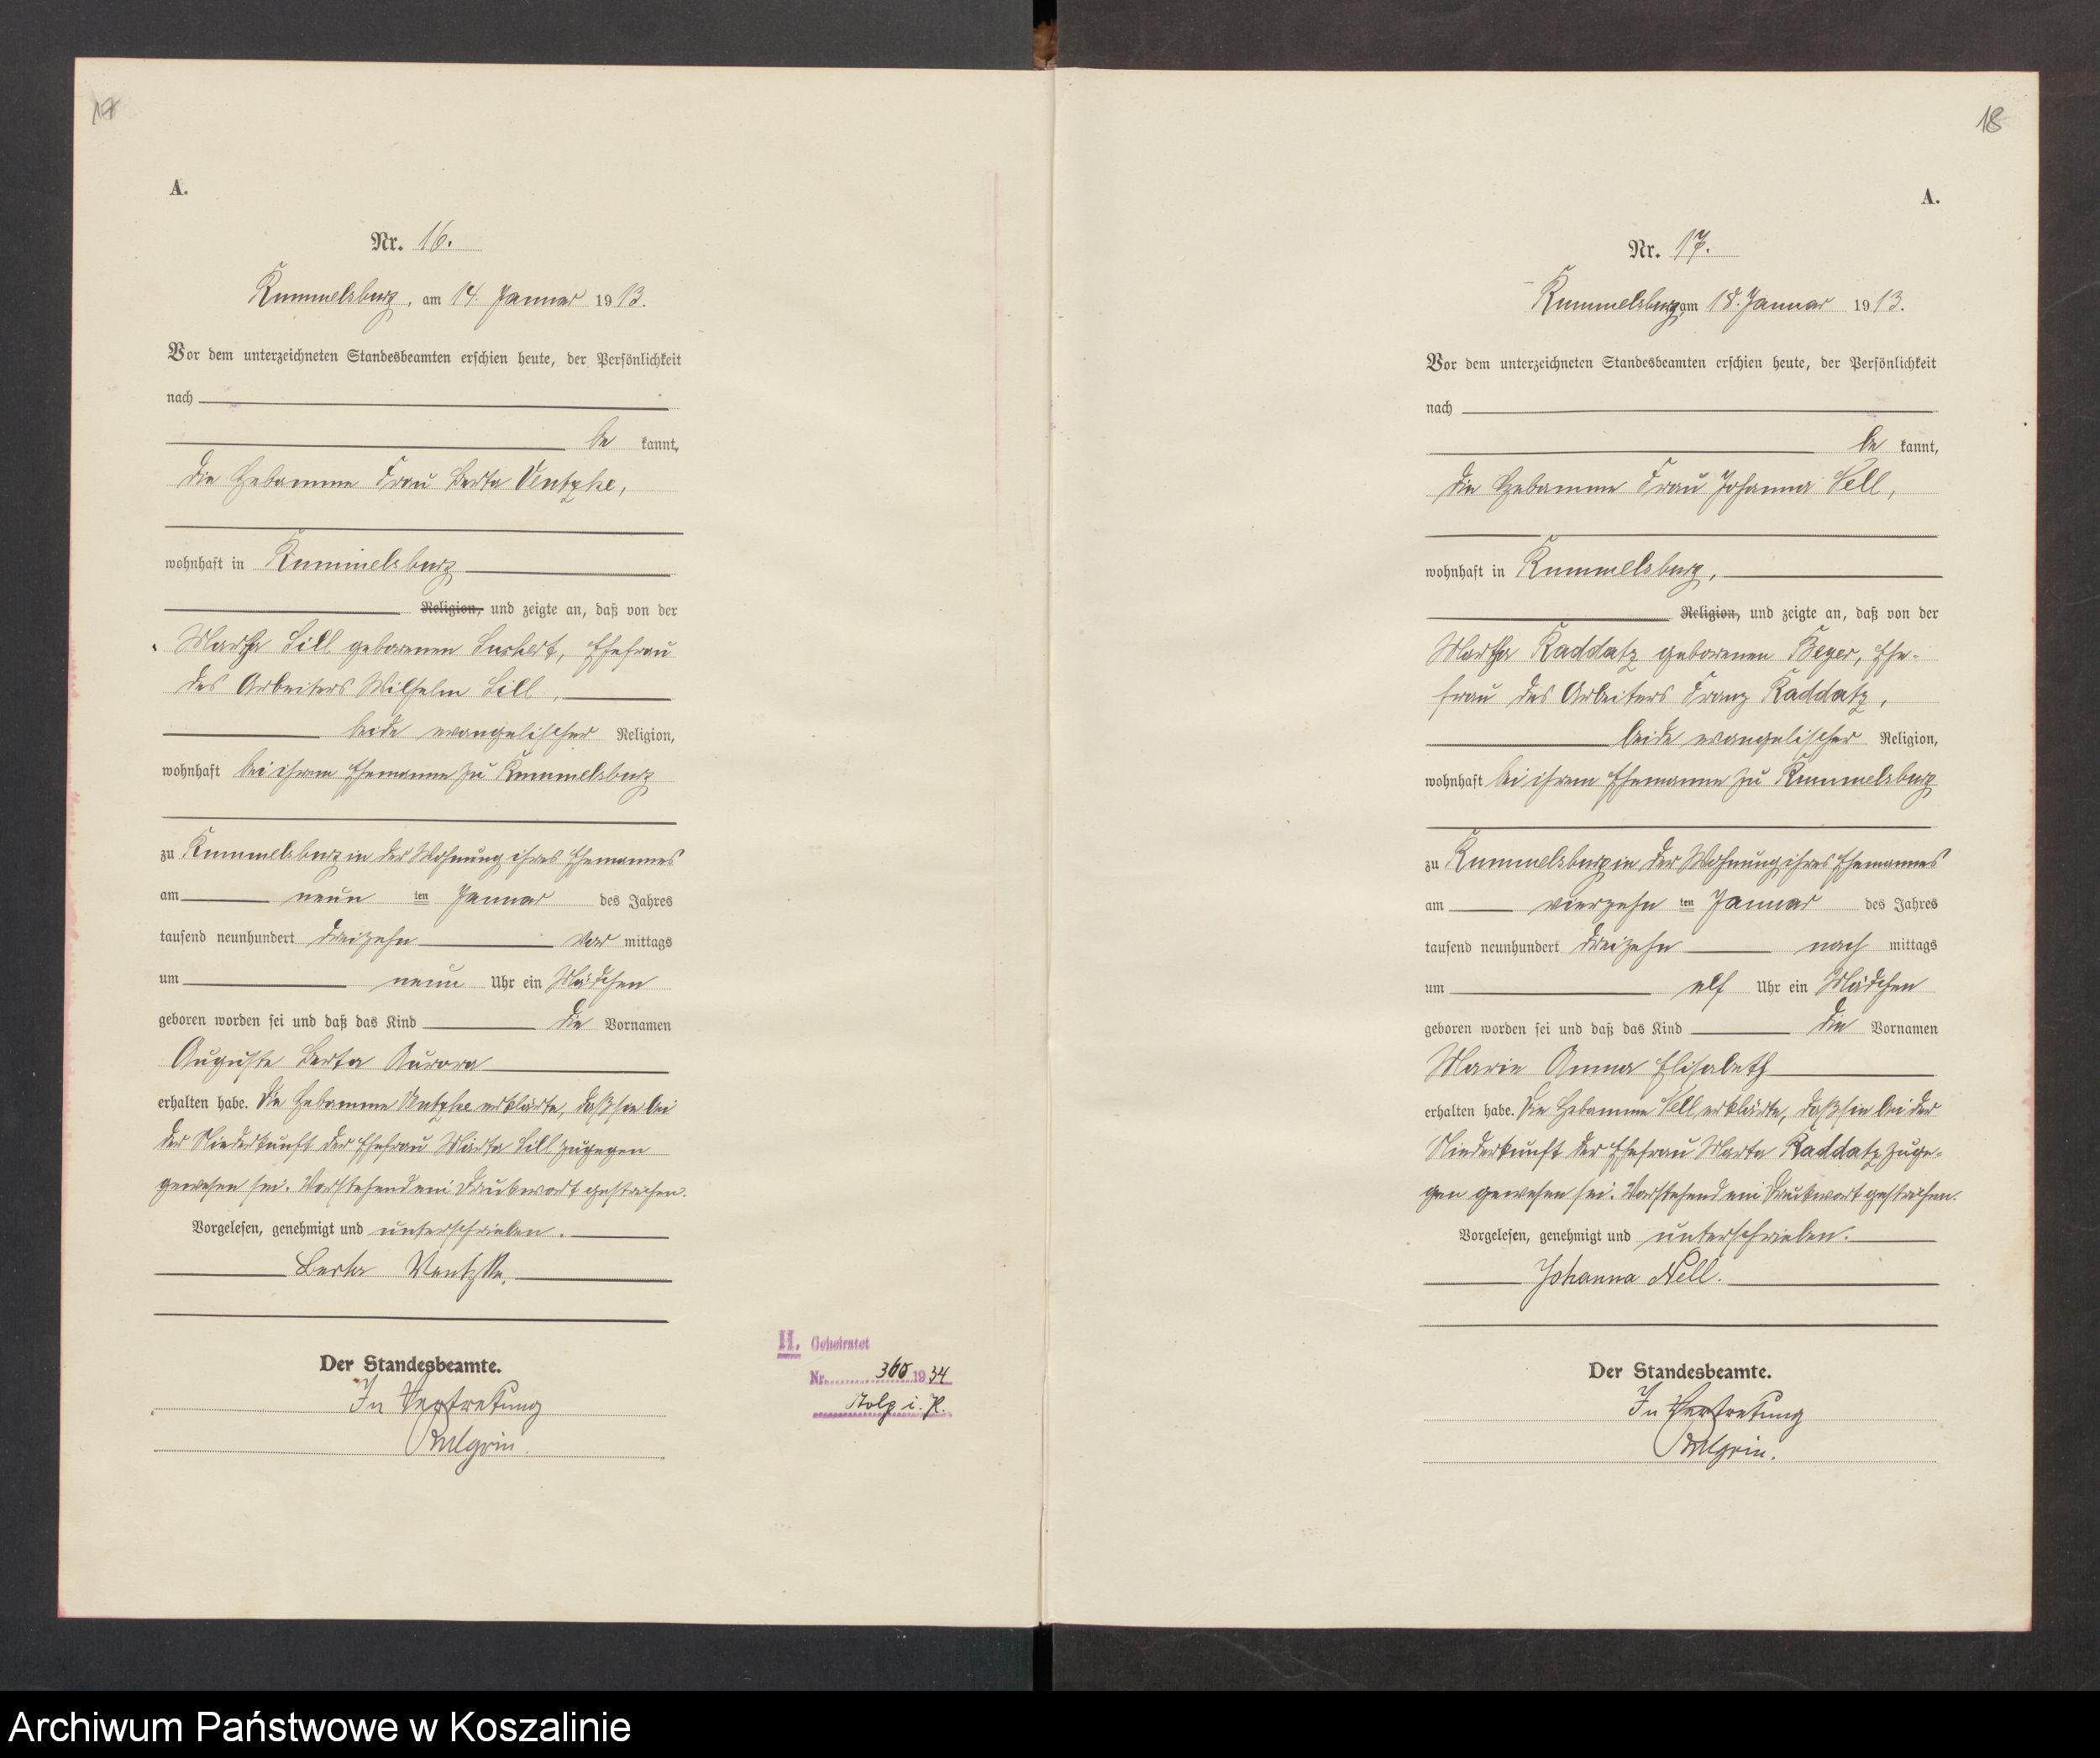 17
A.
Nr. 16.
Rummelsburg, am 14. Januar 1913.
Vor dem unterzeichneten Standesbeamten erschien heute, der Persönlichkeit
nach
be kannt,
die Hebamme Frau Berta Ventzke,
wohnhaft in Rummelsburg
Religion, und zeigte an, daß von der
Martha Sill geborenen Ehefrau
des Arbeiters Wilhelm Sill,
beide evangelischer Religion,
wohnhaft bei ihrem Ehemanne zu Rummelsburg
zu Rummelsburg in der Wohnung ihres Ehemannes
am neun ten Januar des Jahres
tausend neunhundert dreizehn vor mittags
um neun Uhr ein Mädchen
geboren worden sei und daß das Kind die Vornamen
Auguste Berta Aurora
erhalten habe. Die Hebamme Ventzke erklärte, daß sie bei
der Niederkunft der Ehefrau Marta Sill zugegen
gewesen sei. Vorstehend ein Druckwort gestrichen.
Vorgelesen, genehmigt und unterschrieben.
Berta Ventzke.
Der Standesbeamte.
In Vertretung
H. Geheiratet
Nr. 360 1934
Stolp i. P.
18
A.
Nr. 17.
Rummelsburg, am 18. Januar 1913.
Vor dem unterzeichneten Standesbeamten erschien heute, der Persönlichkeit
nach
be kannt,
die Hebamme Frau Johanna Sell,
wohnhaft in Rummelsburg,
Religion, und zeigte an, daß von der
Martha Raddatz geborenen Beyer, Ehe-
frau des Arbeiters Franz Raddatz,
beide evangelischer Religion,
wohnhaft bei ihrem Ehemanne zu Rummelsburg
zu Rummelsburg in der Wohnung ihres Ehemannes
am vierzehn ten Januar des Jahres
tausend neunhundert dreizehn nach mittags
um elf Uhr ein Mädchen
geboren worden sei und daß das Kind die Vornamen
Marie Anna Elisabeth
erhalten habe. Die Hebamme Sell erklärte, daß sie bei der
Niederkunft der Ehefrau Marta Raddatz zuge-
gen gewesen sei. Vorstehend ein Druckwort gestrichen.
Vorgelesen, genehmigt und unterschrieben.
Johanna Sell.
Der Standesbeamte.
In Vertretung
Archiwum Państwowe w Koszalinie